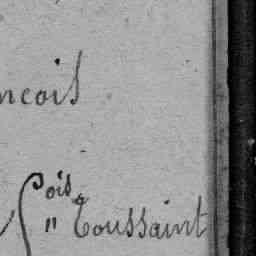 ncois
ois
" Toussaint